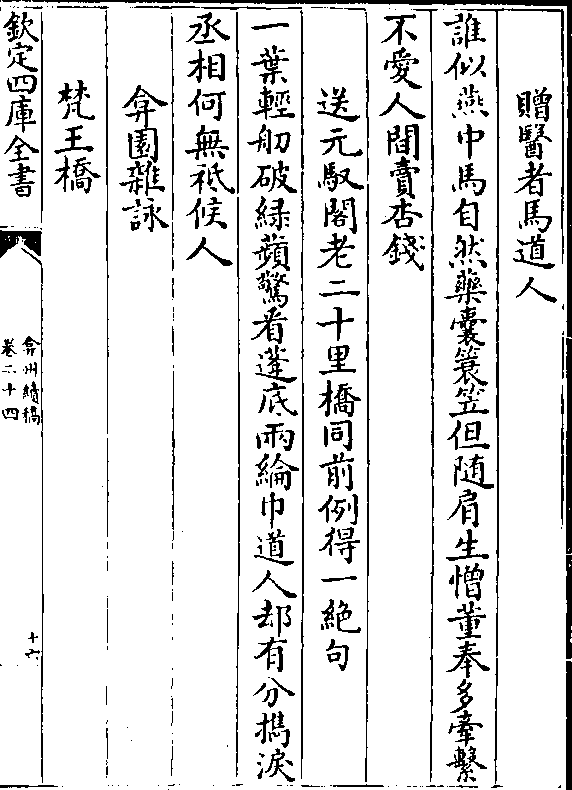 贈醫者馬道人
誰似燕市馬自然藥囊簑笠但随肩生憎董奉多牽繫
不愛人間賣杏錢
送元馭閣老二十里橋同前例得一絶句
一葉輕舠破緑蘋驚看蓬底兩綸巾道人却有分攜淚
丞相何無祗候人
弇園雜詠
梵王橋
欽定四庫全書
弇州續稿
卷二十四
十六